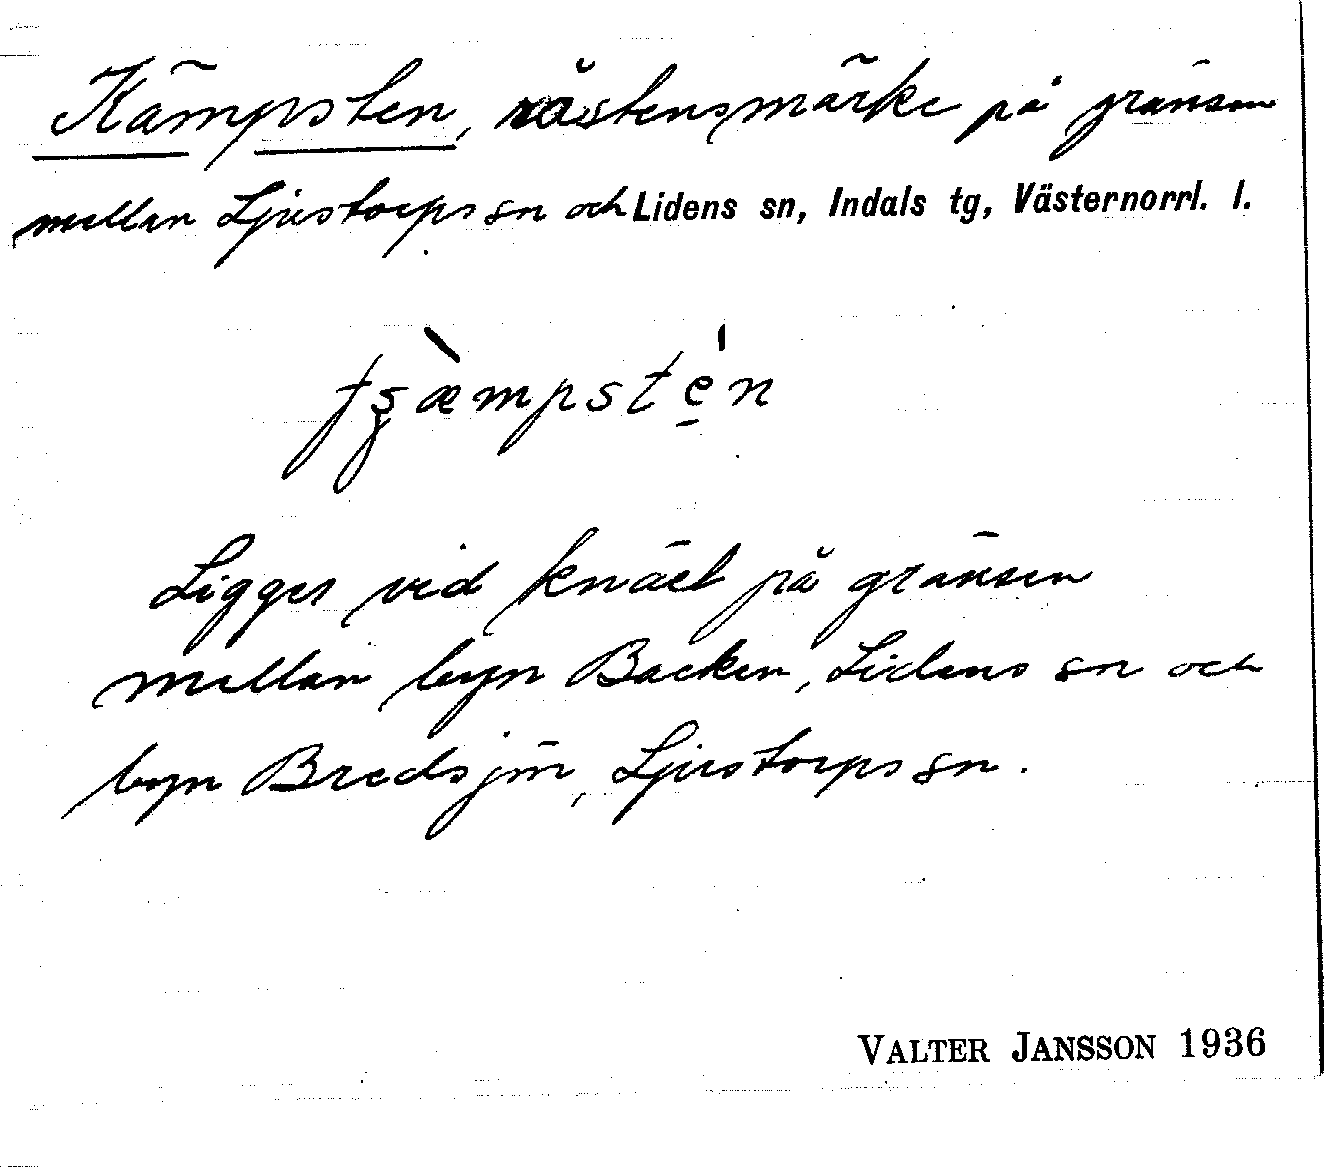 Kämpsten, råstensmärke på gränsen
mellan Ljustorps sn och Lidens sn, Indals tg, Västernorrl. l.
tʂæ̀mpstẹ́n
Ligger vid knäet på gränsen
mellan byn Backen, Lidens sn och
byn Bredsjön, Ljustorps sn.
VALTER JANSSON 1936